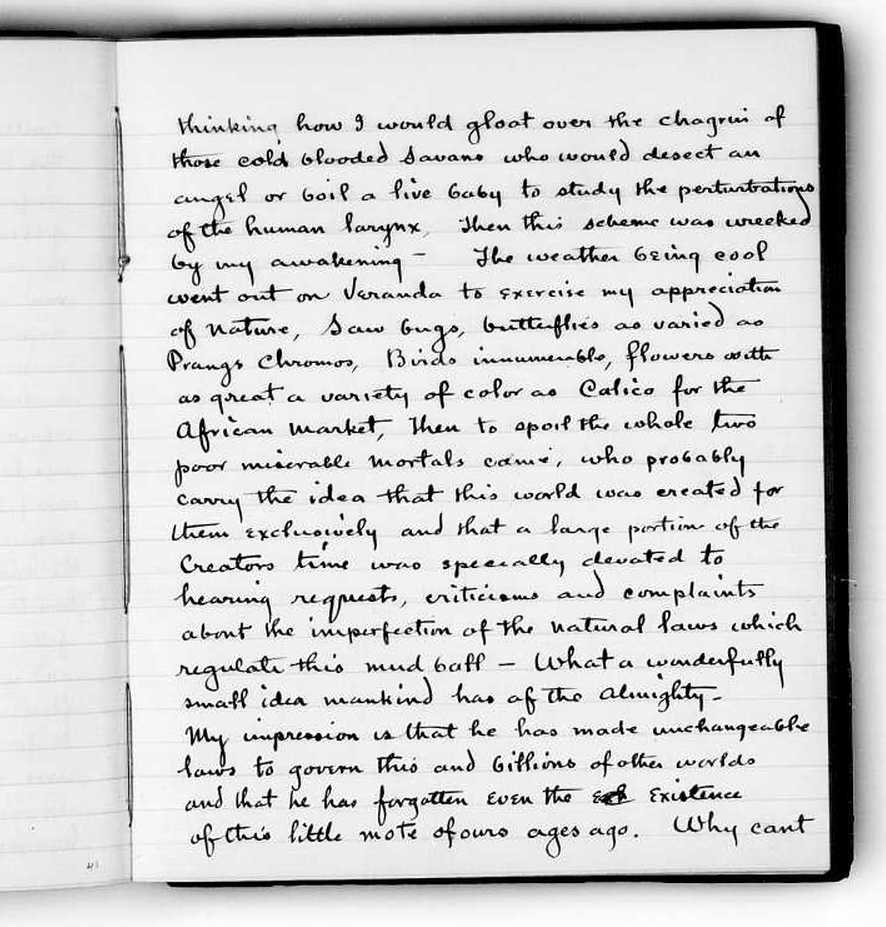 thinking how I would gloat over the chagrin of
those cold blooded Savans who would desect an
angel or boil a live baby to study the perturbations
of the human larynx, Then this scheme was wrecked
by my awakening — The weather being cool
went out on Veranda to exercise my appreciation
of Nature, Saw bugs, butterflies as varied as
Prangs Chromos, Birds innumerable, flowers with
as great a variety of color as Calico for the
African market, Then to spoil the whole two
poor miserable mortals came, who probably
carry the idea that this world was created for
them exclusively and that a large portion of the
Creators time was specially devoted to
hearing requests, criticisms and complaints
about the imperfection of the natural laws which
regulate this mud ball — What a wonderfully
small idea mankind has of the Almighty —
My impression is that he has made unchangeable
laws to govern this and billions of other worlds
and that he has forgotten even the existence
of this little mote of ours ages ago. Why cant